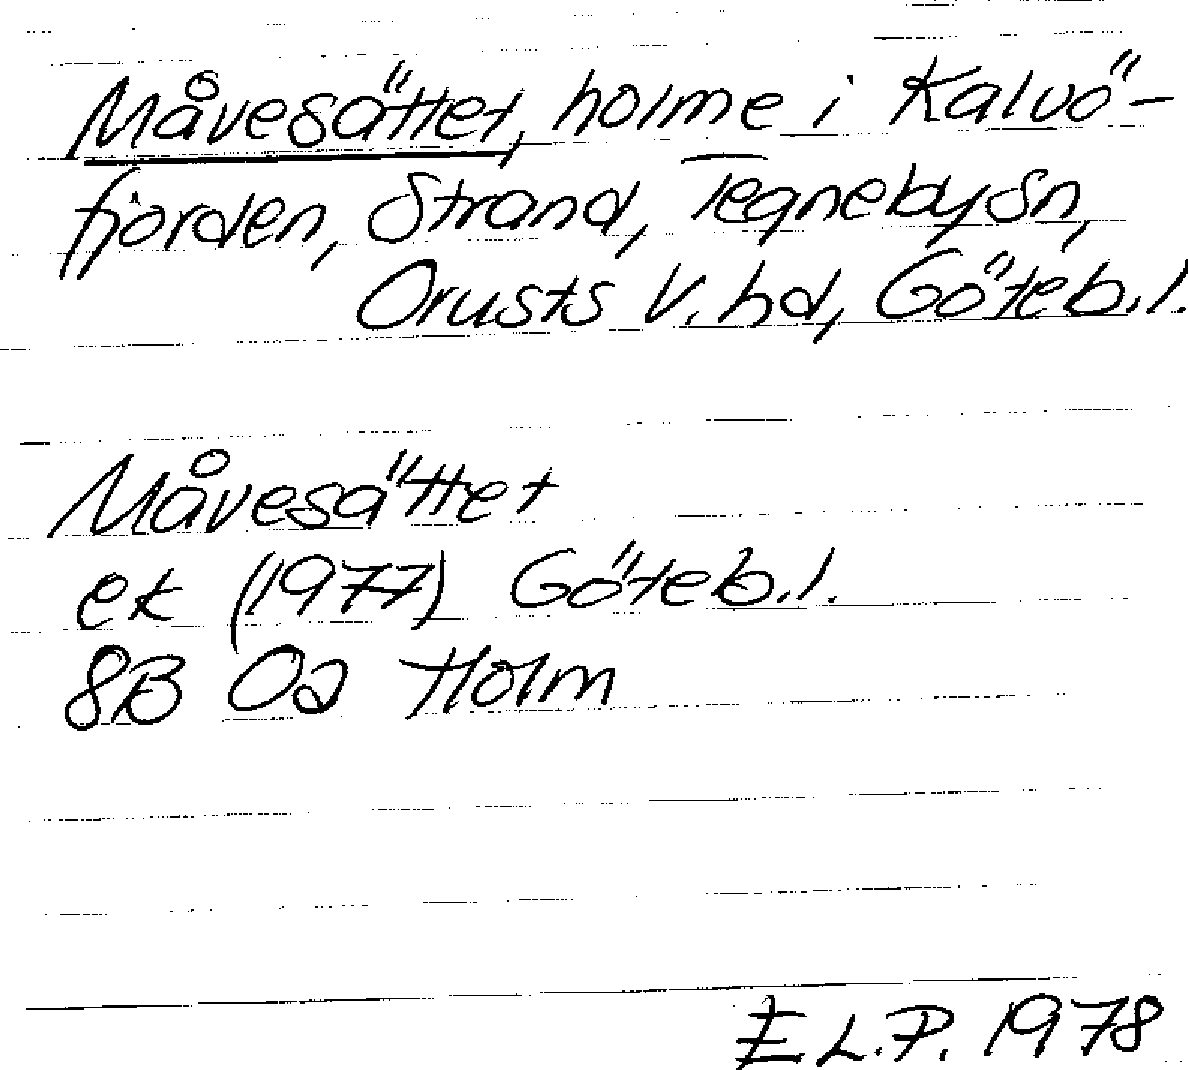 Måvesättet, holme i Kalvö-
fjorden, Strand, Tegneby sn,
Orusts V. hd, Göteb. l.
Måvesättet
ek (1977) Göteb. l.
8B 0a Holm
E L.P. 1978